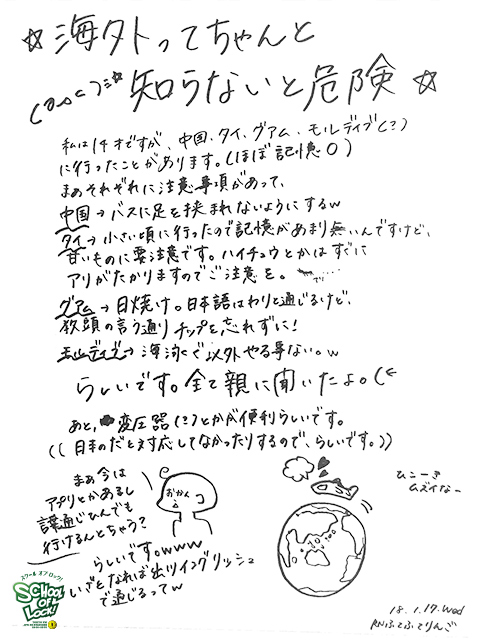 ☆海外ってちゃんと
知らないと危険☆
私は14才ですが、中国、タイ、グアム、モルディブ(?)
に行ったことがあります。(ほぼ記憶0)
まぁそれぞれに注意事項があって、
中国→バスに足を挟まれないようにするw
タイ→小さい頃に行ったので記憶があまり無いんですけど、
甘いものに要注意です。ハイチュウとかはすぐに
アリがたかりますのでご注意を。
グアム→日焼け。日本語はわりと通じるけど、
教頭の言う通りチップを忘れずに!
モルディブ→海泳ぐ以外やる事ない。w
らしいです。全て親に聞いたよ。
あと、変圧器(?)とかが便利らしいです。
((日本のだと対応してなかったりするので、らしいです。))
まぁ今は
アプリとかあるし
言葉通じひんでも
行けるんとちゃう?
おかん
らしいですwww
いざとなれば出川イングリッシュ
で通じるってw
ひこーき
ムズイなー
スクールオブロック!
SCHOOL OF LOCK!
18.1.17.Wed
RNふてふてりんご